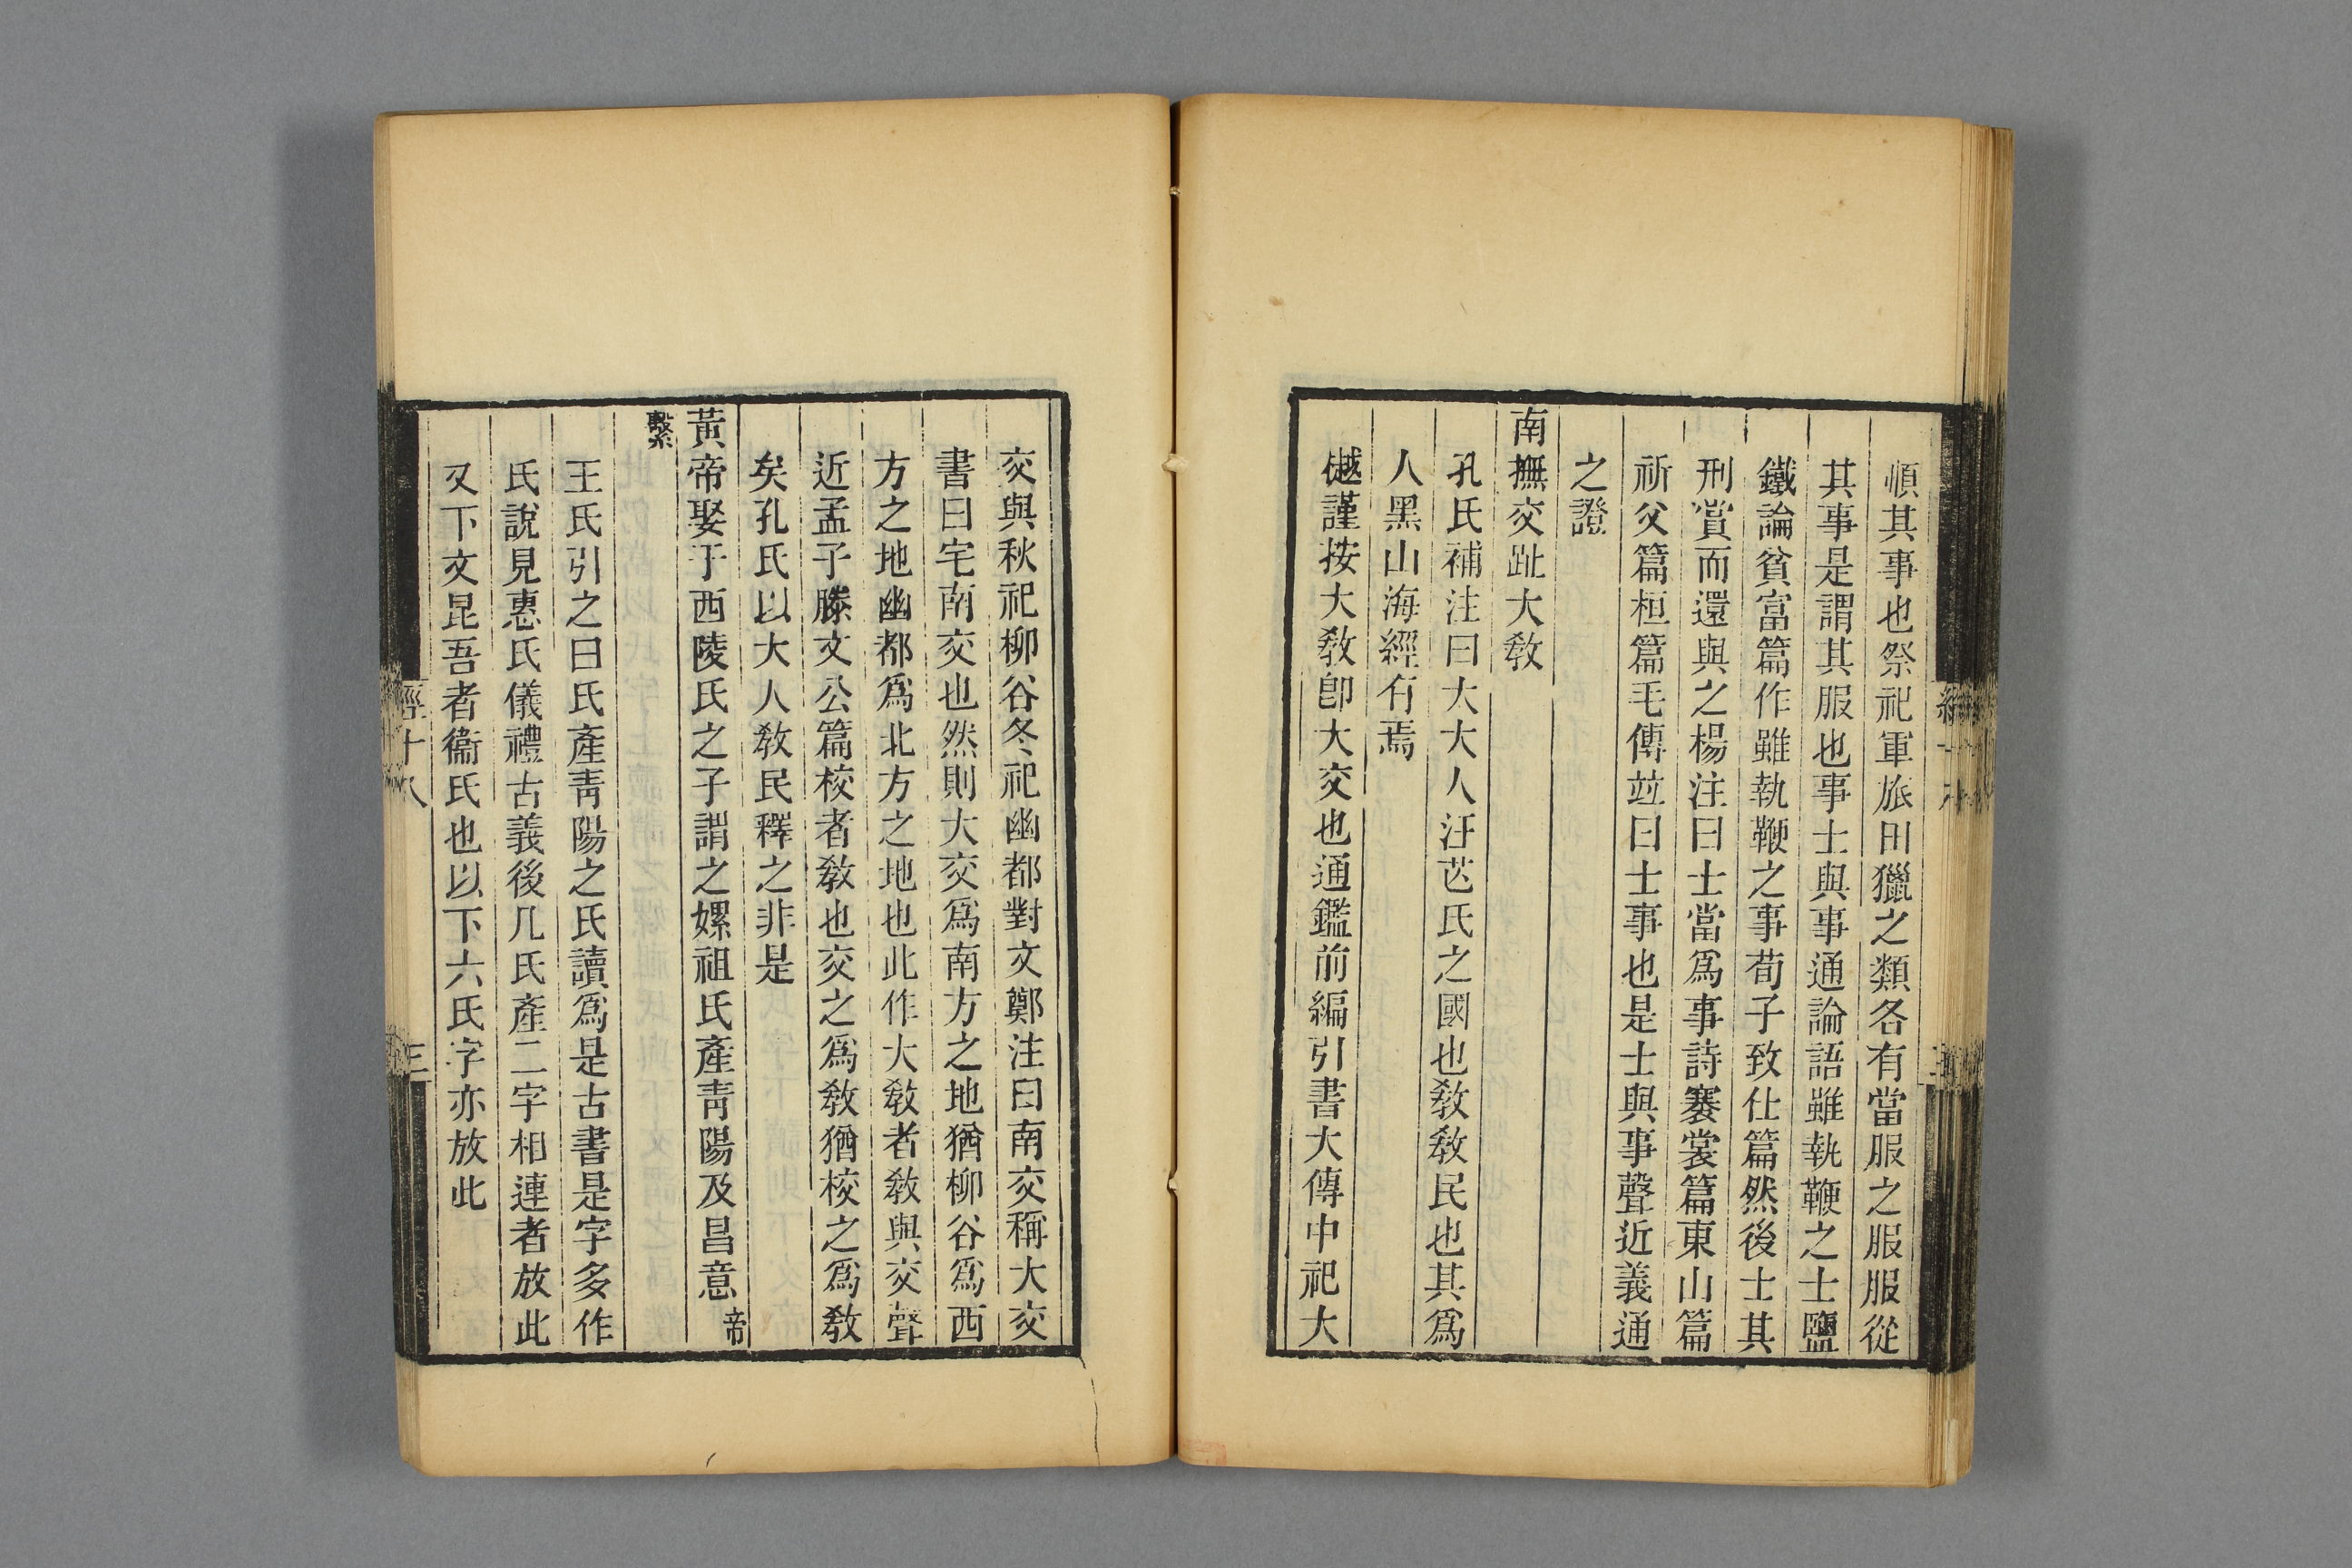 順其事也祭祀軍旅田獵之類各有當服之服服從
其事是謂其服也事士與事通論語雖執鞭之士鹽
鐵論貧富篇作雖執鞭之事荀子致仕篇然後士其
刑賞而還與之楊注曰士當爲事詩褰裳篇東山篇
祈父篇桓篇毛傳竝曰士事也是士與事聲近義通
之證
南撫交趾大敎
孔氏補注曰大大人汪芒氏之國也敎敎民也其爲
人黑山海經有焉
樾謹按大敎卽大交也通鑑前編引書大傳中祀大
交與秋祀柳谷冬祀幽都對文鄭注曰南交稱大交
書曰宅南交也然則大交爲南方之地猶柳谷爲西
方之地幽都爲北方之地也此作大敎者敎與交聲
近孟子滕文公篇校者敎也交之爲敎猶校之爲敎
矣孔氏以大人敎民釋之非是
黃帝娶于西陵氏之子謂之嫘祖氏產靑陽及昌意帝
繫
王氏引之曰氏產靑陽之氏讀爲是古書是字多作
氏說見惠氏儀禮古義後凡氏產二字相連者放此
又下文昆吾者衞氏也以下六氏字亦放此
經十八
三